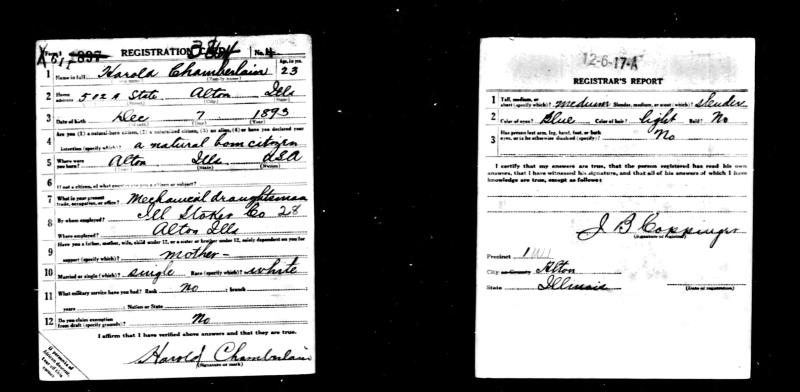 Form 1 REGISTRATION CARD No. 4
1 Name in full Harold Chamberlain Age, in yrs. 23
(Family name)
2 Home address 502 A State Alton Ills
(Street) (City) (State)
3 Date of birth Dec 7 1893
(Month) (Day) (Year)
4 Are you (1) a natural-born citizen, (2) a naturalized citizen, (3) an alien, (4) or have you declared your
intention (specify which)? a natural born citizen
5 Where were you born? Alton Ills USA
(Town) (State) (Nation)
6 If not a citizen, of what country are you a citizen or subject?
7 What is your present trade, occupation, or office? Mechanical draughtsman
8 By whom employed? Ill Stoker Co 28
Where employed? Alton Ills
9 Have you a father, mother, wife, child under 12, or a sister or brother under 12, solely dependent on you for
support (specify which)? mother-
10 Married or single (which)? single Race (specify which)? white
11 What military service have you had? Rank no ; branch
years ; Nation or State
12 Do you claim exemption from draft (specify grounds)? No
I affirm that I have verified above answers and that they are true.
Harold Chamberlain
(Signature or mark)
12-6-17-A
REGISTRAR'S REPORT
1 Tall, medium, or short (specify which)? medium Slender, medium, or stout (which)? slender
2 Color of eyes? Blue Color of hair? light Bald? No
3 Has person lost arm, leg, hand, foot, or both
eyes, or is he otherwise disabled (specify)? No
I certify that my answers are true, that the person registered has read his own
answers, that I have witnessed his signature, and that all of his answers of which I have
knowledge are true, except as follows:
J B Coppinger
(Signature of registrar)
Precinct 1
City or County Alton
State Illinois (Date of registration)